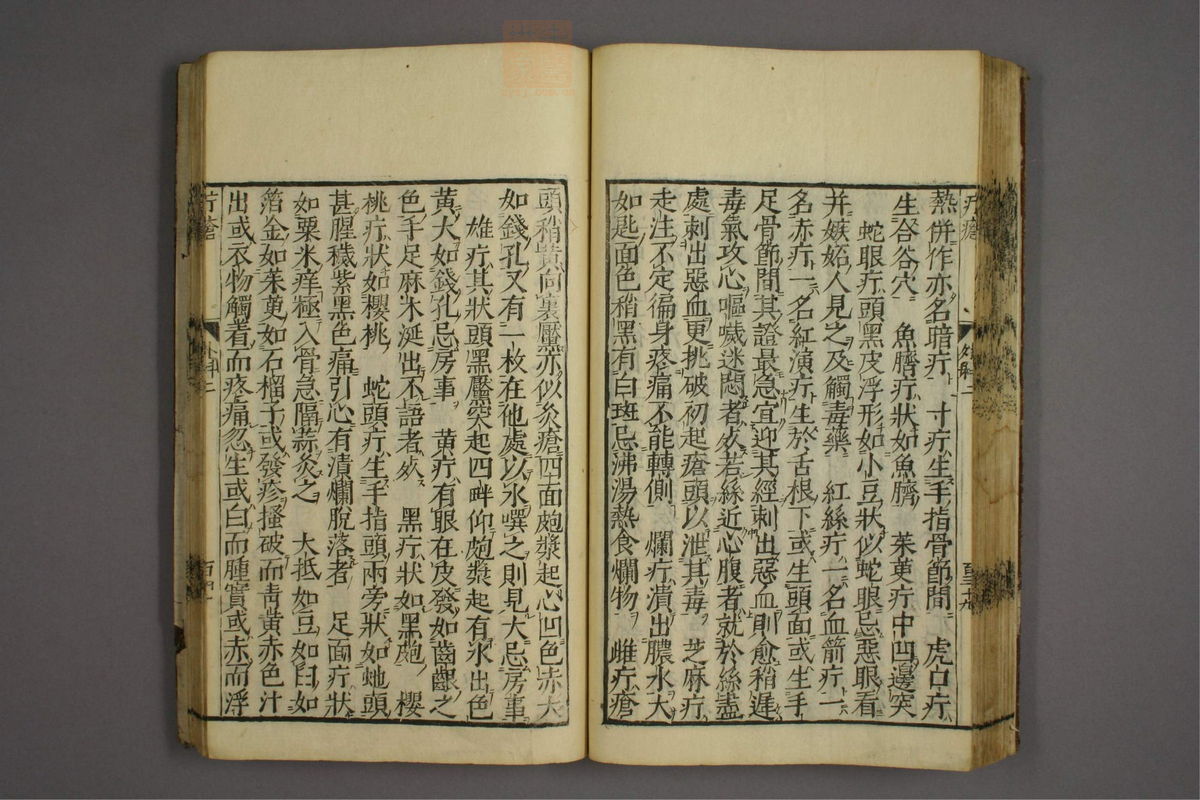 疔瘡
外科二
熱併作亦名暗疔 寸疔生手指骨節間 虎口疔
生合谷穴 魚臍疔狀如魚臍 茱萸疔中凹邊突
蛇眼疔頭黑皮浮形如小豆狀似蛇眼忌惡眼看
并嫉妬人見之及觸毒藥 紅絲疔一名血箭疔一
名赤疔一名紅演疔生於舌根下或生頭面或生手
足骨節間其證最急宜迎其經刺出惡血則愈稍遲
毒氣攻心嘔噦迷悶者死若絲近心腹者就於絲盡
處刺出惡血更挑破初起瘡頭以泄其毒 芝麻疔
走注不定徧身疼痛不能轉側 爛疔潰出膿水大
如匙面色稍黑有白斑忌沸湯熱食爛物 雌疔瘡
頭稍黃向裏黶亦似灸瘡四面皰漿起心凹色赤大
如錢孔又有一枚在他處以水噀之則見大忌房事
雄疔其狀頭黑黶突起四畔仰皰漿起有水出色
黃大如錢孔忌房事 黃疔有眼在皮發如齒齦之
色手足麻木涎出不語者死 黑疔狀如黑皰 櫻
桃疔狀如櫻桃 蛇頭疔生手指頭兩旁狀如虵頭
甚腥穢紫黑色痛引心有潰爛脫落者 足面疔狀
如粟米痒極入骨急隔蒜灸之 大抵如豆如臼如
箔金如茱萸如石榴子或發疹搔破而靑黃赤色汁
出或衣物觸着而疼痛忽生或白而腫實或赤而浮
疔瘡
外科二